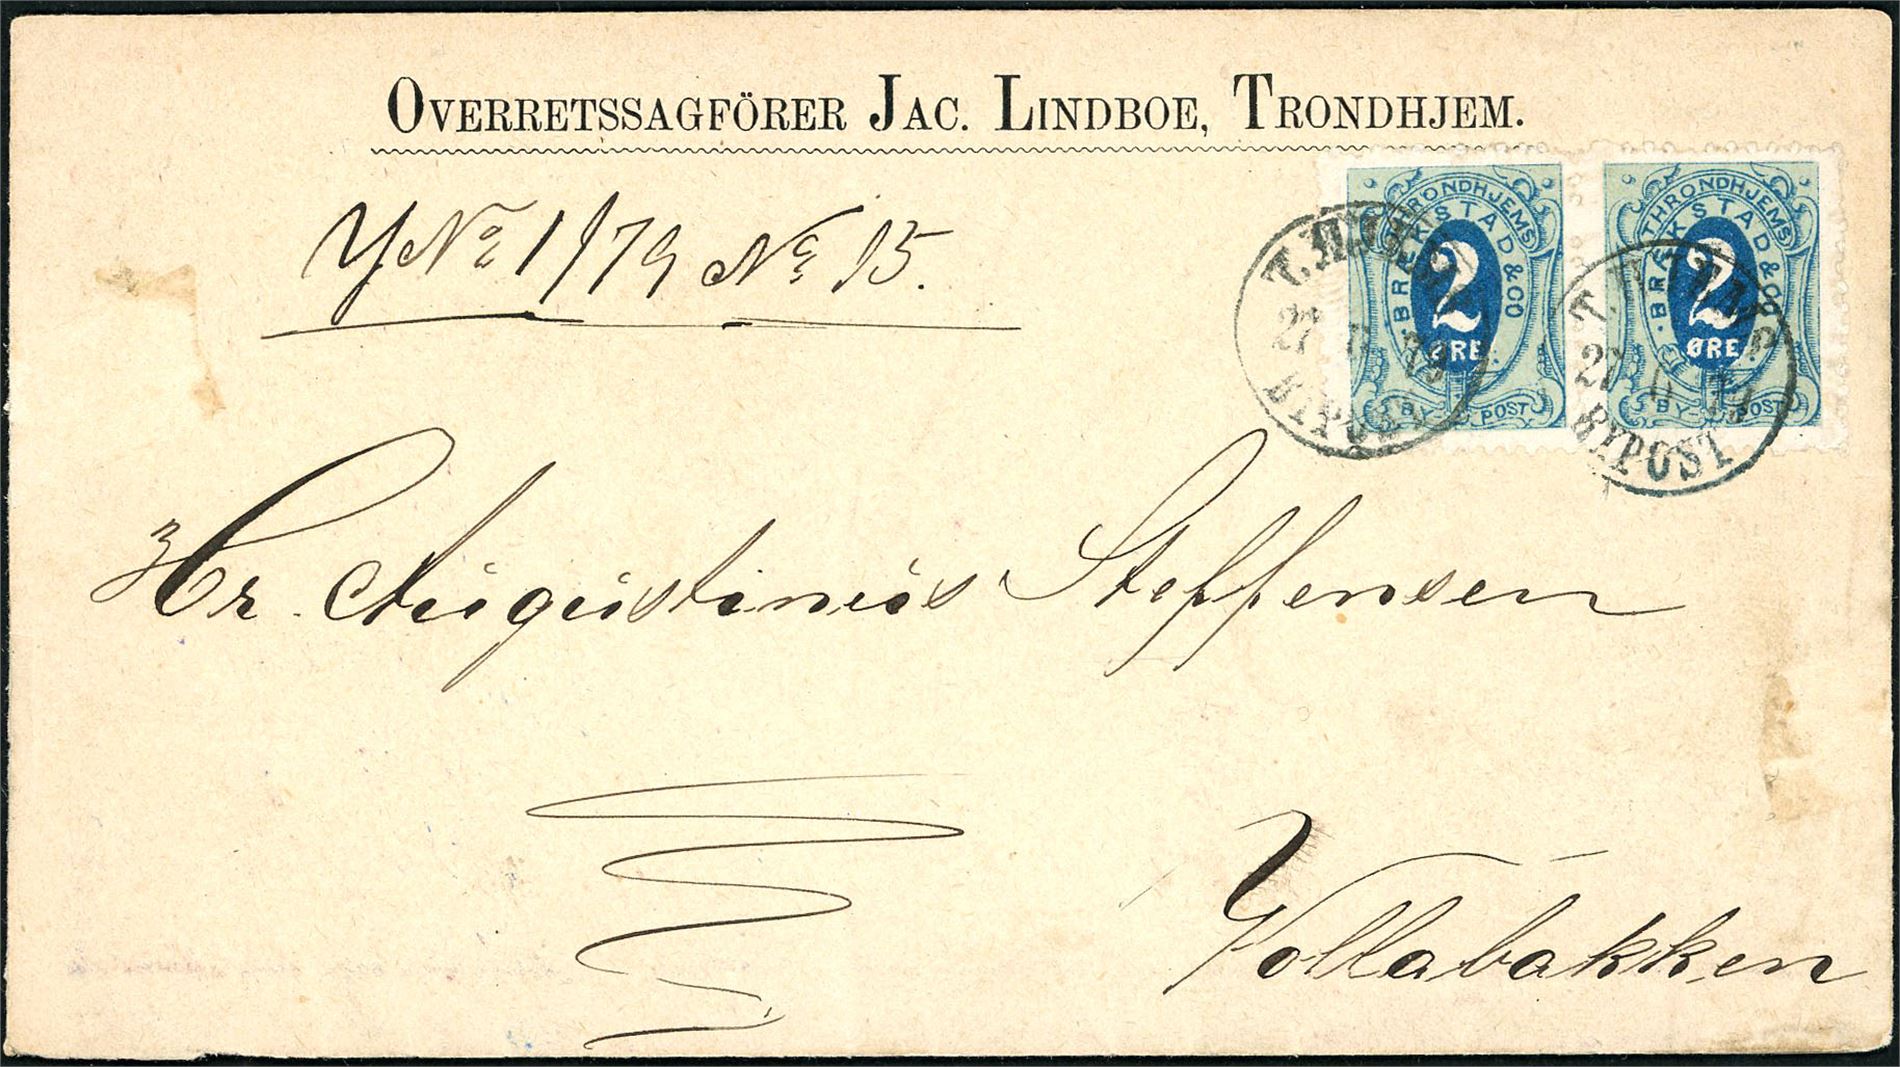 OVERRETSSAGFÖRER JAC. LINDBOE, TRONDHJEM.
No 1/79 No 15.
THRONDHJEMS
BRÆKSTAD & CO
2
ØRE
BY-POST
THRONDHJEMS
BRÆKSTAD & CO
2
ØRE
BY-POST
27
BYPOST
BYPOST
Hr. Augustinus Steffensen
Vollabakken